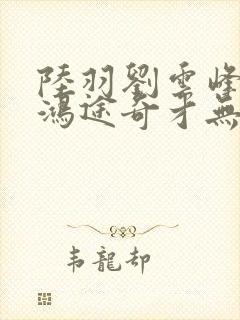 陸羽劉雲峰
鴻途奇才無
韦龍却